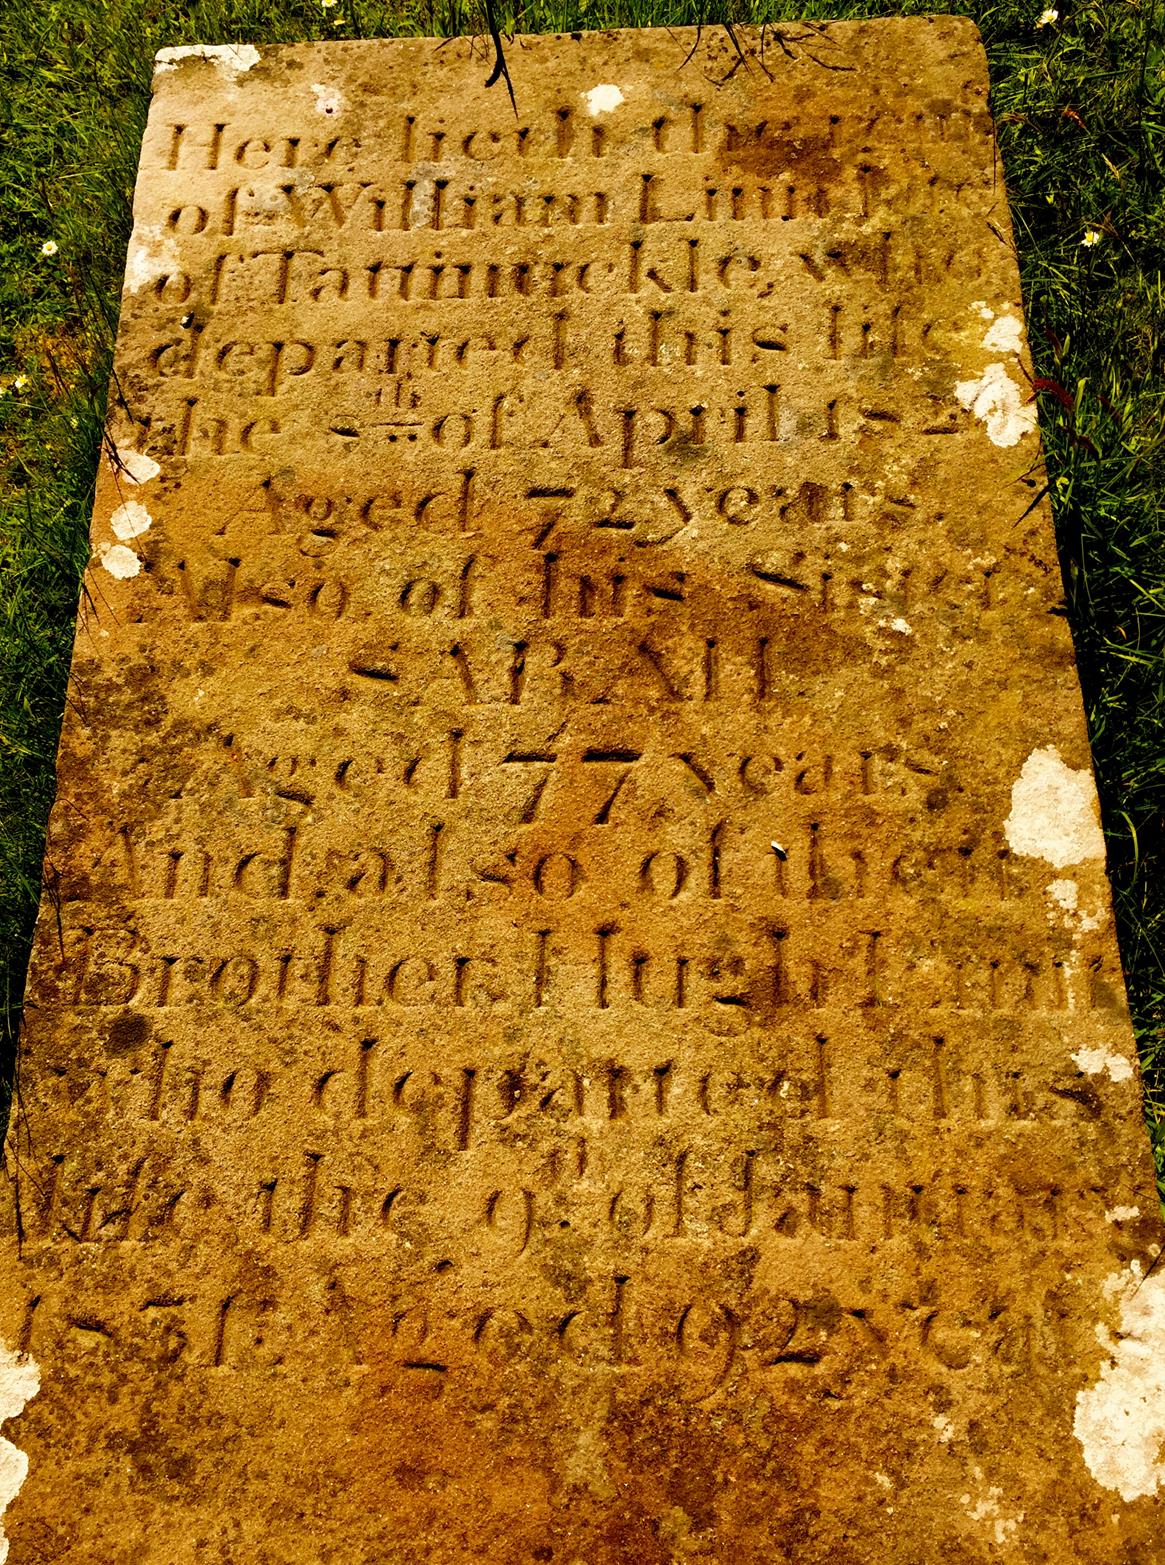 Here lieth the
of William
of Tannuckle, who
departed this life
the of April
Aged 72 years
Also of his Sister
SARAH
Aged 77 years
And also of their
Brother Hugh
who departed this
life the 9th of
Aged 92